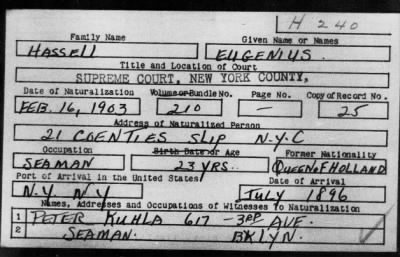 H 240
Family Name Given Name or Names
HASSELL EUGENIUS.
Title and Location of Court
SUPREME COURT, NEW YORK COUNTY,
Date of Naturalization Volume or Bundle No. Page No. Copy of Record No.
FEB. 16, 1903 210 — 25
Address of Naturalized Person
21 COENTIES SLIP N.Y.C
Occupation Birth Date or Age Former Nationality
SEAMAN 23 YRS. QUEEN OF HOLLAND
Port of Arrival in the United States Date of Arrival
N.Y. N.Y JULY 1896
Names, Addresses and Occupations of Witnesses To Naturalization
1 PETER KUHLA 617 - 3RD AVE.
2 SEAMAN. BKLYN.